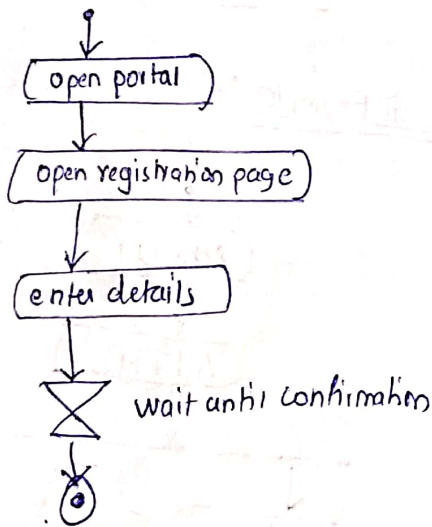 open portal
open registration page
enter details
wait until confirmation